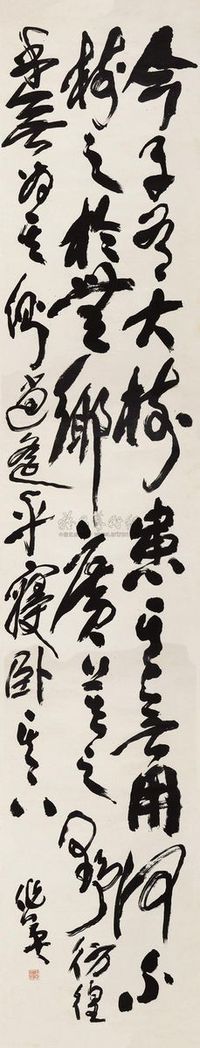 今子有大樹患其無用何不
樹之於無鄉廣莫之野彷徨
乎無為其側逍遙乎寢臥其下